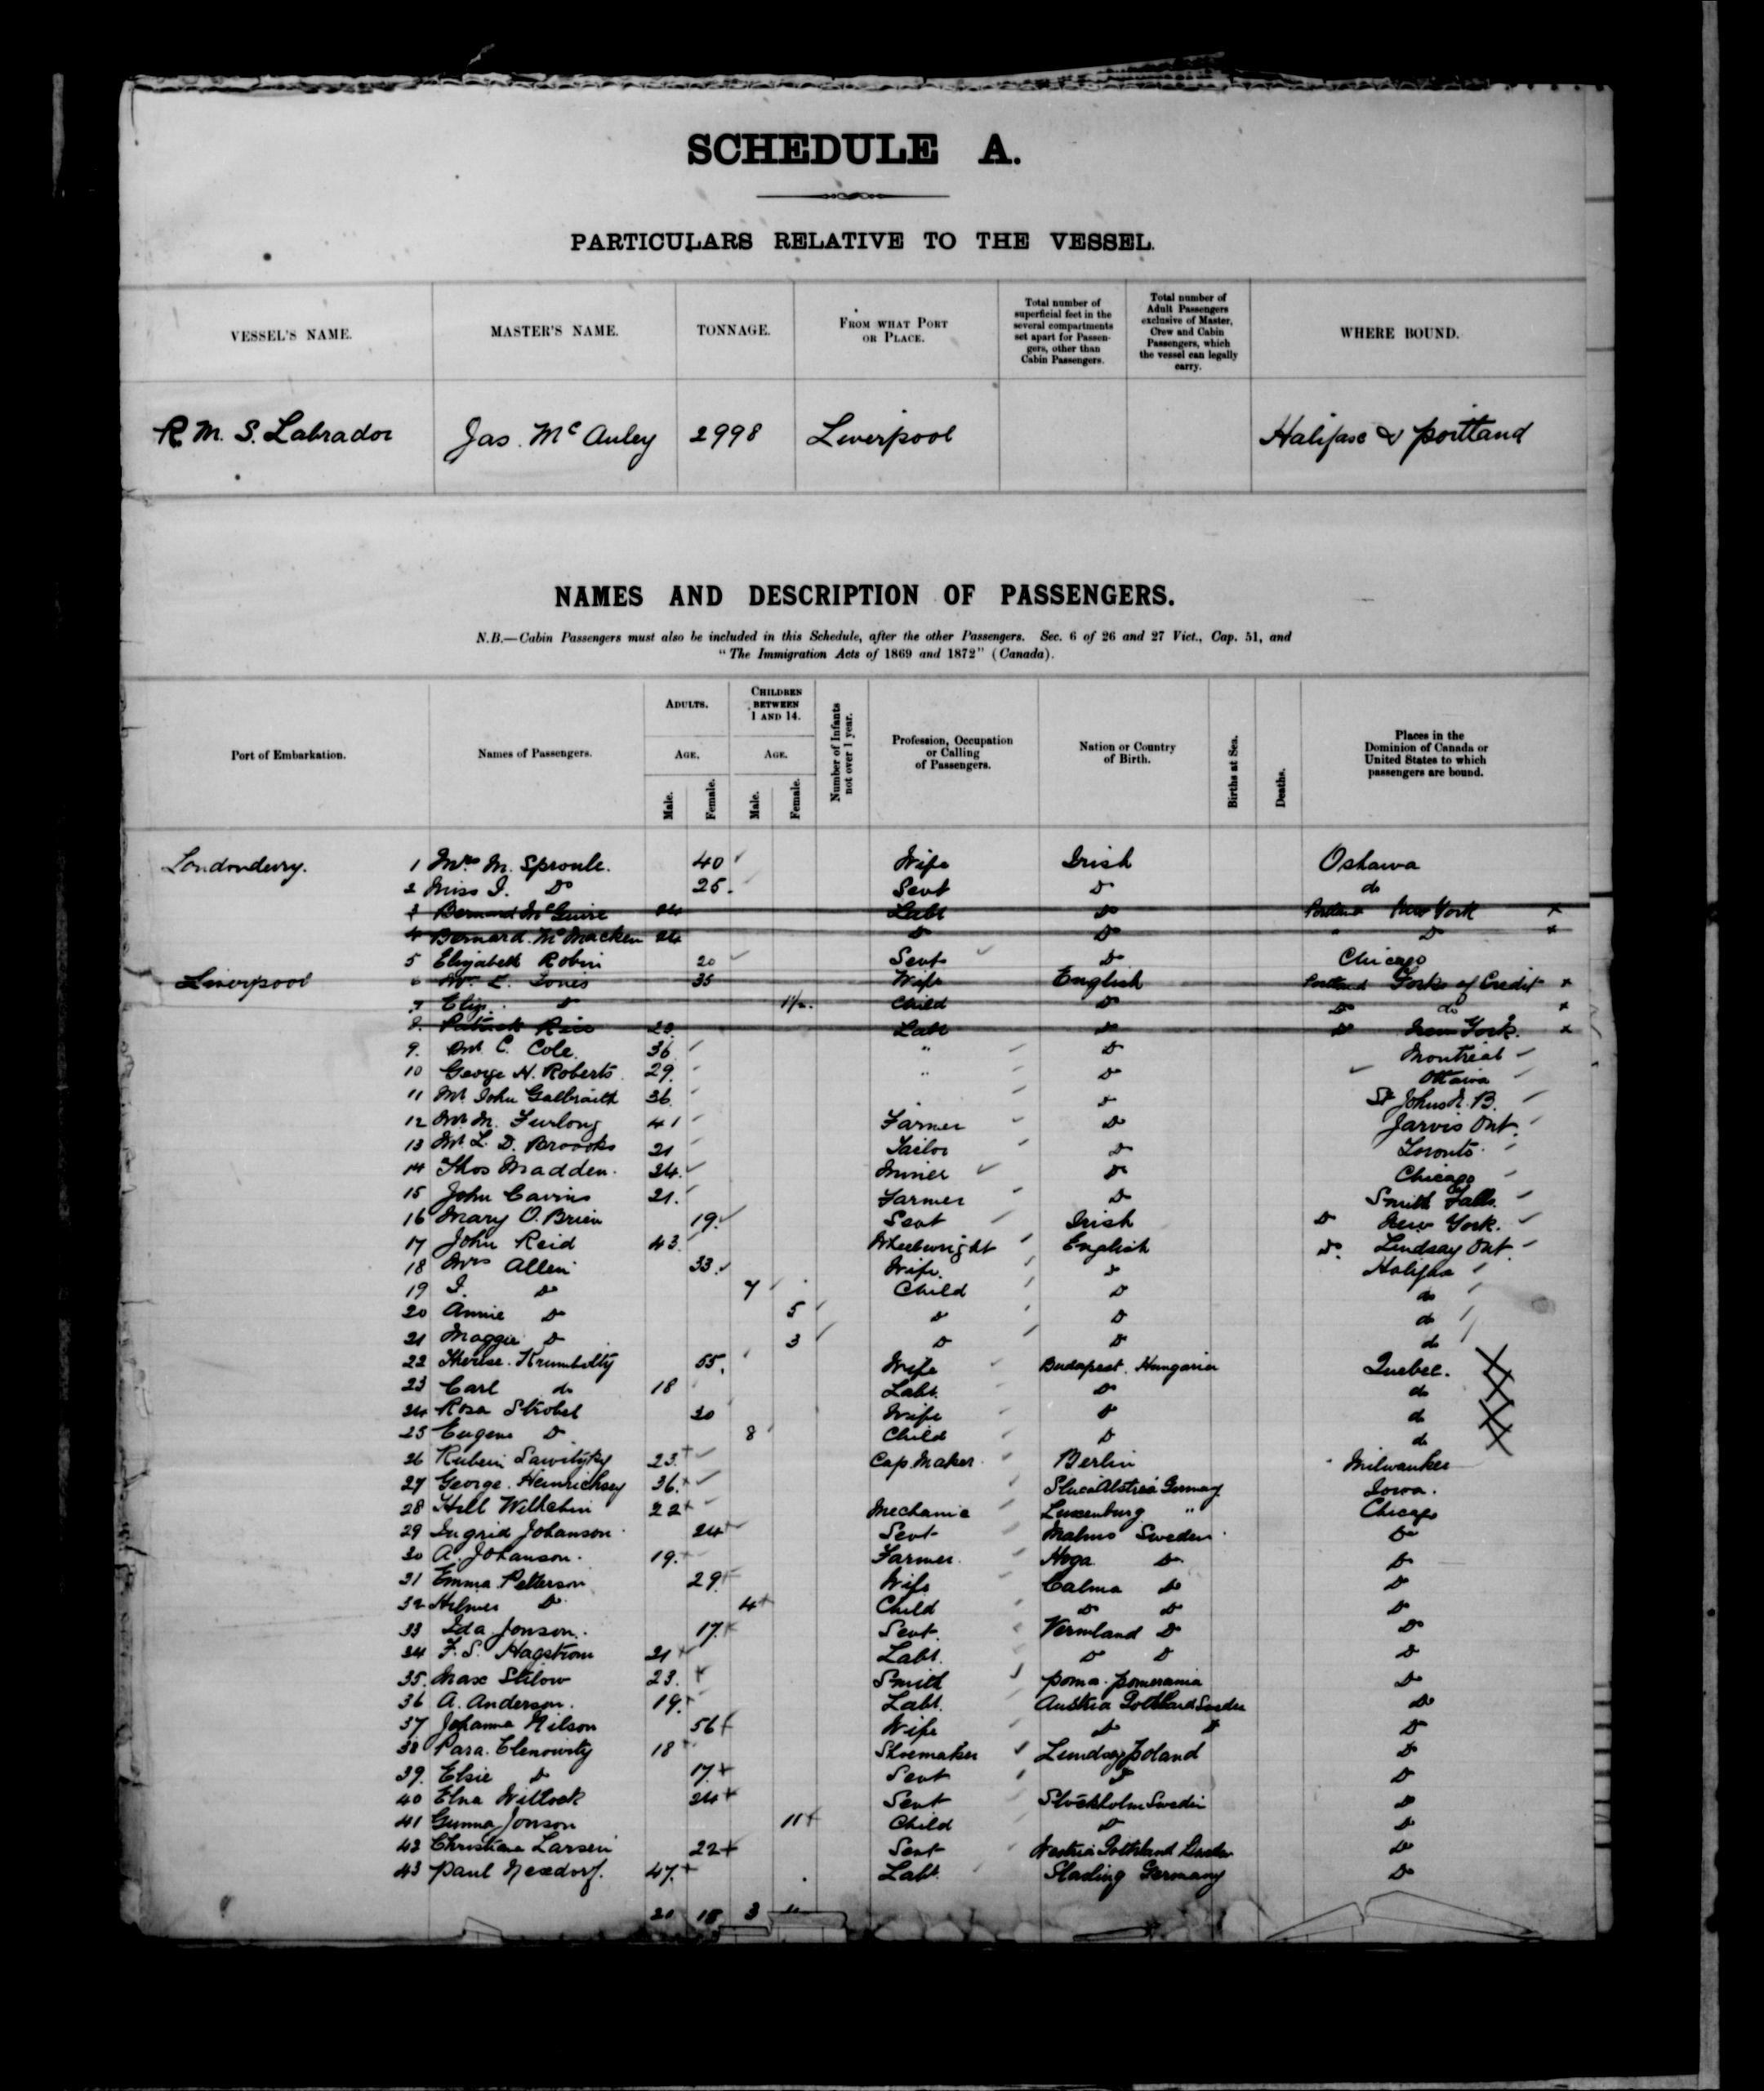 SCHEDULE A.
PARTICULARS RELATIVE TO THE VESSEL.
VESSEL'S NAME. MASTER'S NAME. TONNAGE. FROM WHAT PORT OR PLACE. Total number of superficial feet in the several compartments set apart for Passengers, other than Cabin Passengers. Total number of Adult Passengers exclusive of Master, Crew and Cabin Passengers, which the vessel can legally carry. WHERE BOUND.
R.M.S. Labrador Jas. McAuley 2998 Liverpool Halifax & portland
NAMES AND DESCRIPTION OF PASSENGERS.
N.B.—Cabin Passengers must also be included in this Schedule, after the other Passengers. Sec. 6 of 26 and 27 Vict., Cap. 51, and
"The Immigration Acts of 1869 and 1872" (Canada).
Port of Embarkation. Names of Passengers. ADULTS. AGE. Male. Female. CHILDREN BETWEEN 1 AND 14. AGE. Male. Female. Number of Infants not over 1 year. Profession, Occupation or Calling of Passengers. Nation or Country of Birth. Births at Sea. Deaths. Places in the Dominion of Canada or United States to which passengers are bound.
Londonderry. 1 Mrs M. Sproule. 40 Wife Irish Oshawa
2 Miss I. Do 25. Sevt Do do
3 Bernard McGuire 24 Labr Do Portland New York x
4 Bernard McMacken 24 Do Do " Do x
5 Elizabeth Robin 20 Sevt Do Chicago
Liverpool 6 Mrs E. Jones 35 Wife English Portland Forks of Credit x
7 Eliz. Do Child Do Do do x
8. Patrick Rice Labr Do Do New York. x
9. Mr C. Cole. 36 " Do Montreal
10 George H. Roberts 29. " Do Ottawa
11 Mr. John Galbraith 36. Do St Johns N.B.
12 Mr M. Furlong 41 Farmer Do Jarvis Ont.
13 Mr L. D. Broooks 21 Tailor Do Toronto
14 Thos Madden. 24. Miner Do Chicago
15 John Cavins 21. Farmer Do Smith Falls.
16 Mary O.Brien 19. Sevt Irish Do New York.
17 John Reid 43. Wheelwright English Do. Lindsay Ont.
18 Mrs Allen 33. Wife. Do Halifax
19 I. Do 7 Child Do do
20 Annie Do 5 Do Do do
21 Maggie Do 3 Do Do do
22 Therese. 55. Wife Budapest. Hungarier Quebec. X
23 Carl do 18 Labr. Do do X
24 Rosa Strobel 30 Wife Do do X
25 Eugene Do 8 Child Do do X
26 Rubein 23. Cap. Maker Berlin Milwaukee
27 George. Heinrichsey 36. Germany Iowa.
28 Hell Wilhelm 22 Mechanic Luxenburg " Chicago
29 Ingrid Johanson 24 Sevt Malmo Sweden Do
30 A. Johanson. 19. Farmer. Hoga Do Do
31 Emma Petterson 29 Wife Calma Do Do
32 Hilmer Do 4 Child Do Do Do
33 Ida Jonson. 17. Sevt. Vermland Do Do
34 F. S. Hagstrom 21 Labr. Do Do Do
35. Max Stilow 23. Smith poma. pomerania Do
36 A. Anderson. 19. Labr. Austria Gothland Sweden Do
37 Johanna Nilson 56 Wife Do Do Do
38 Para. Elenowity 18 Shoemaker poland Do
39. Elsie Do 17. Sevt Do Do
40 Elna Willock 24 Sevt Stockholm Sweden Do
41 Gunna Jonson 11 Child Do Do
42 Christiane Larsen 22 Sevt Westria Gothland Do
43 paul Nexdorf. 47. Labr. Stading Germany Do
3